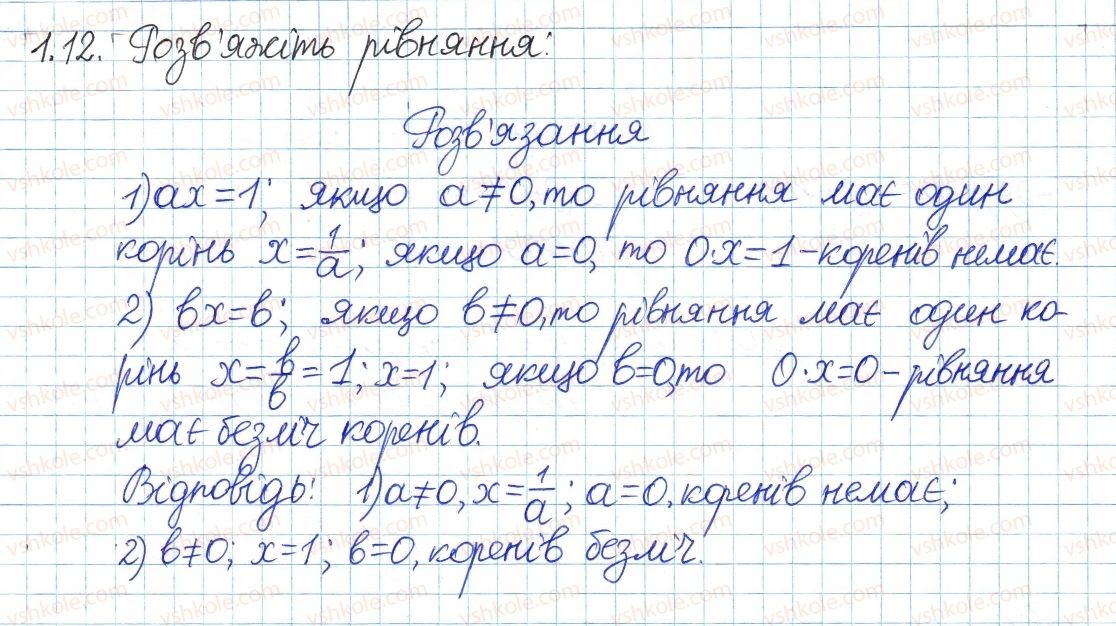 1.12. Розв'яжіть рівняння:
Розв'язання
1) ax = 1; якщо a ≠ 0, то рівняння має один
корінь x = 1/a; якщо a = 0, то 0·x = 1 – коренів немає.
2) bx = b; якщо b ≠ 0, то рівняння має один ко-
рінь x = b/b = 1; x = 1; якщо b = 0, то 0·x = 0 – рівняння
має безліч коренів.
Відповідь: 1) a ≠ 0, x = 1/a; a = 0, коренів немає;
2) b ≠ 0; x = 1; b = 0, коренів безліч.